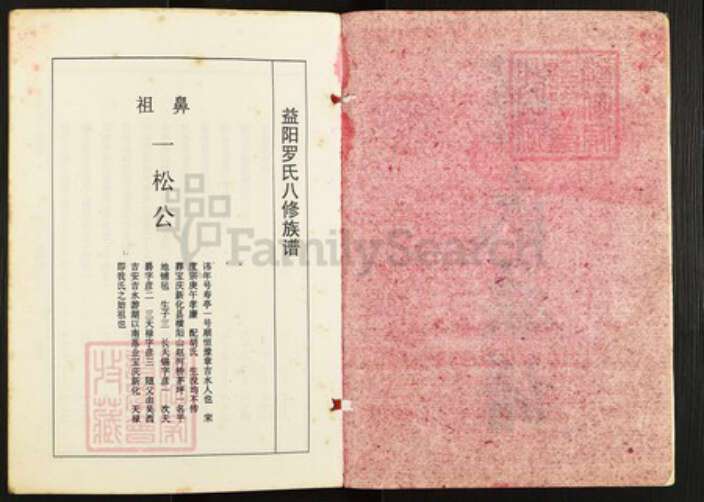 益阳罗氏八修族谱
鼻祖
一松公
讳年号寿亭一号顺恒豫章吉水人也 宋
度宗庚午孝廉 配胡氏 生没均不传
葬宝庆新化县横阳山赵河桥茅坪一名平
地铺毡 生子三 长天锡字彦一 次天
爵字彦二 三天禄字彦三 随父由吴西
吉安吉水游湖以南落业宝庆新化 天禄
即我氏之始祖也
FamilySearch